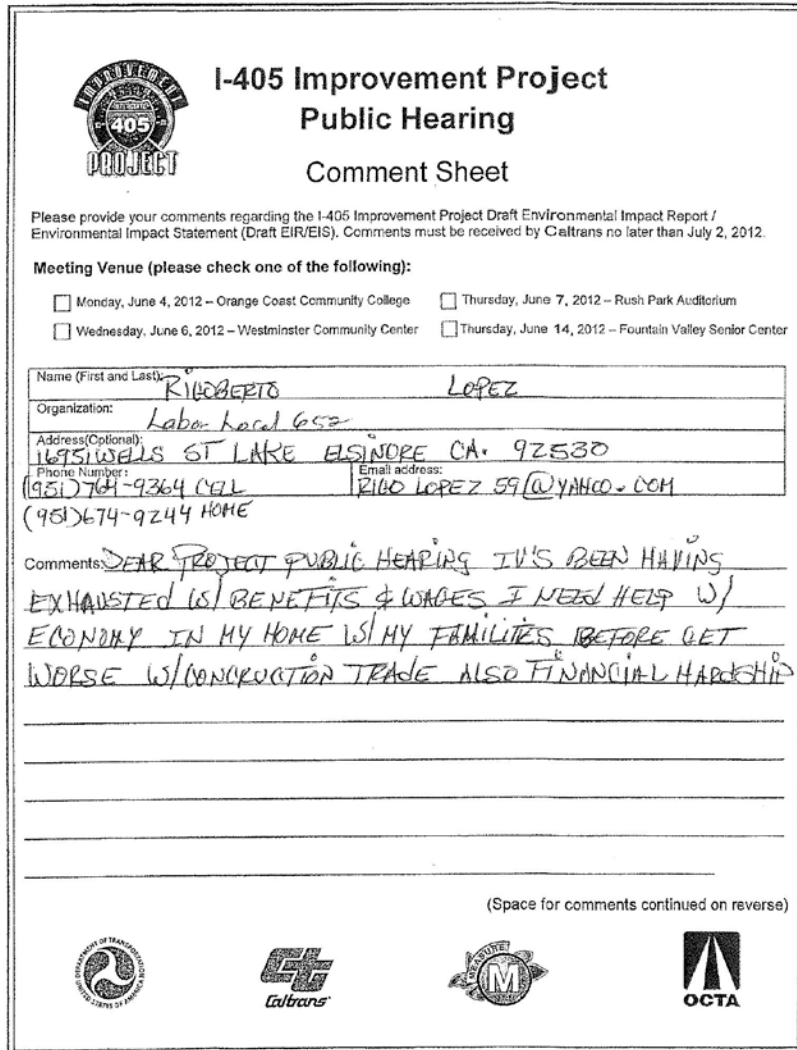 I-405 Improvement Project
Public Hearing
Comment Sheet
IMPROVEMENT
405
PROJECT
Please provide your comments regarding the I-405 Improvement Project Draft Environmental Impact Report /
Environmental Impact Statement (Draft EIR/EIS). Comments must be received by Caltrans no later than July 2, 2012.
Meeting Venue (please check one of the following):
Monday, June 4, 2012 – Orange Coast Community College
Thursday, June 7, 2012 – Rush Park Auditorium
Wednesday, June 6, 2012 – Westminster Community Center
Thursday, June 14, 2012 – Fountain Valley Senior Center
Name (First and Last): RIGOBERTO LOPEZ
Organization: Labor Local 652
Address(Optional): 16951 WELLS ST LAKE ELSINORE CA. 92530
Phone Number: (951)764-9364 CELL
Email address: RIGO LOPEZ 59@YAHOO.COM
(951)674-9244 HOME
Comments: DEAR PROJECT PUBLIC HEARING IV'S BEEN HAVING
EXHAUSTED W/ BENEFITS & WAGES I NEED HELP W/
ECONOMY IN MY HOME W/ MY FAMILITIES BEFORE GET
WORSE W/ CONCRUCTION TRADE ALSO FINANCIAL HARDSHIP
(Space for comments continued on reverse)
DEPARTMENT OF TRANSPORTATION
UNITED STATES OF AMERICA
Caltrans
MEASURE M
OCTA